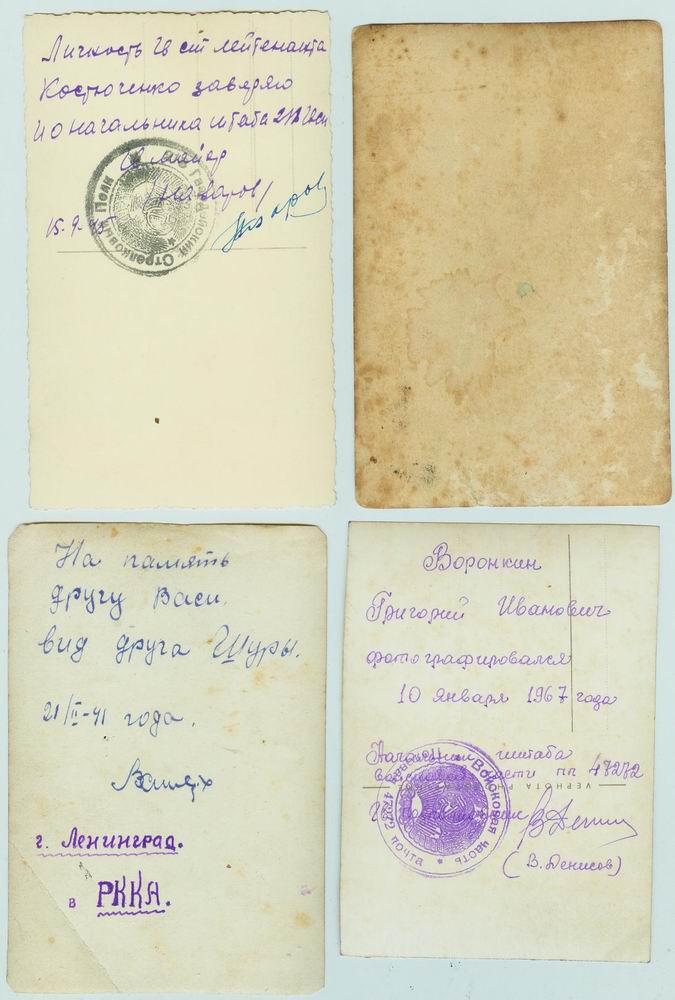 Личность Гв ст лейтенанта
Костюченко заверяю
И О начальника штаба
Гв майор
15.9.45
Гвардейский Стрелковый Полк
На память
другу Васи.
вид друга Шуры.
21/II-41 года.
г. Ленинград.
в РККА.
Воронкин
Григорий Иванович
фотографировался
10 января 1967 года
Начальник штаба
войсковой части пп 47272
(В. Денисов)
Войсковая часть
почта